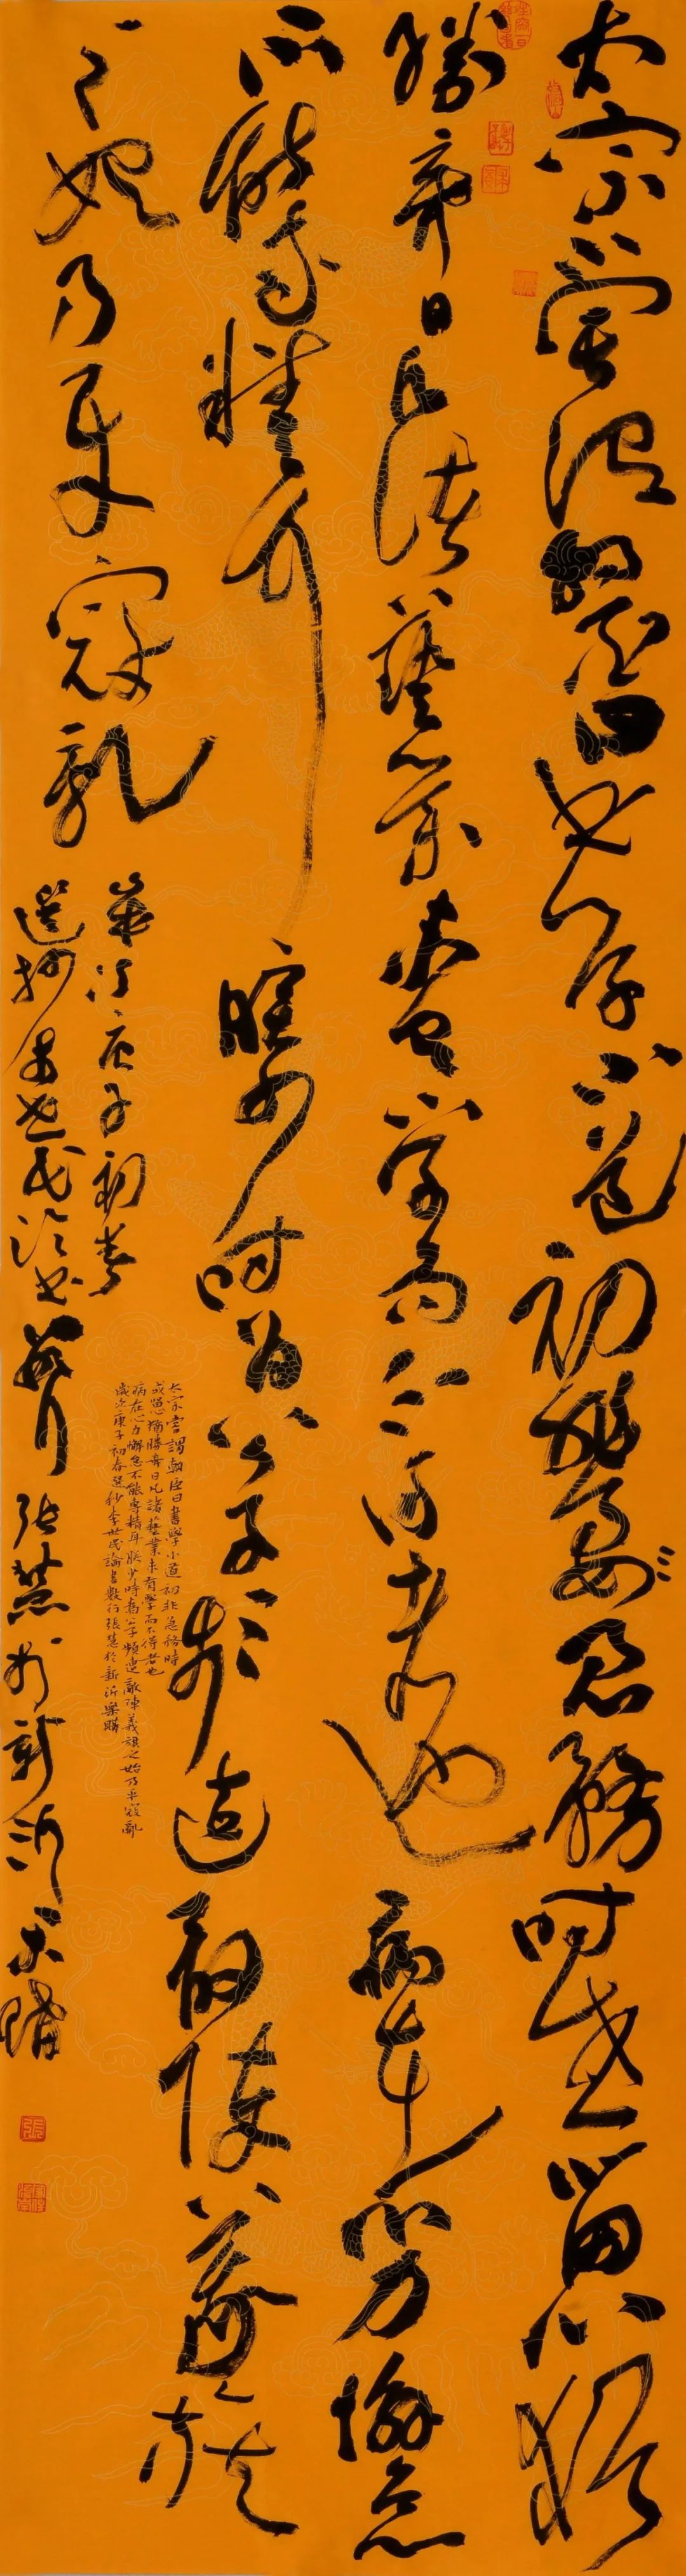 太宗嘗謂朝臣曰書學小道初非急務時或留心猶
勝棄日凡諸藝業未有學而不得者也病在心力懈怠
不能專精耳朕少時為公子頻遭敵陣義旗
之始乃平寇亂
歲次庚子初春
選抄李世民論書數行張慧於新沂
太宗嘗謂朝臣曰書學小道初非急務時
或留心猶勝棄日凡諸藝業未有學而不得者也
病在心力懈怠不能專精耳朕少時為公子頻遭敵陣義旗之始乃平寇亂
歲次庚子初春選抄李世民論書數行張慧於新沂